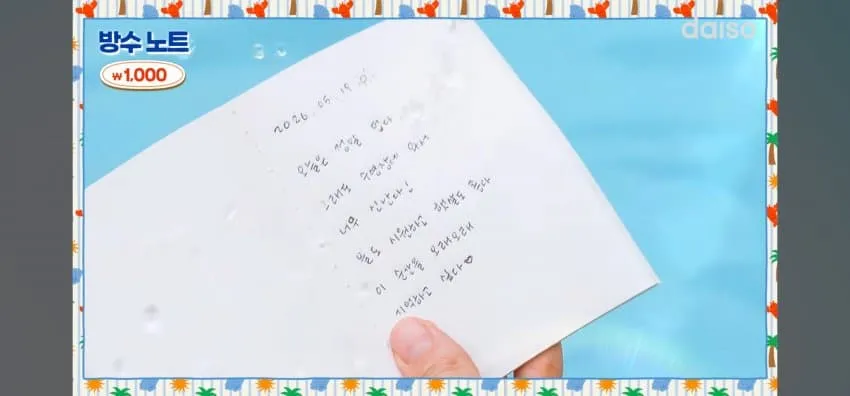 방수 노트
₩1,000
daiso
2026.05.19.
오늘은 정말 덥다
그래도 수영장에 와서
너무 신난다!
물도 시원하고 햇빛도 좋다
이 순간을 오래오래
기억하고 싶다